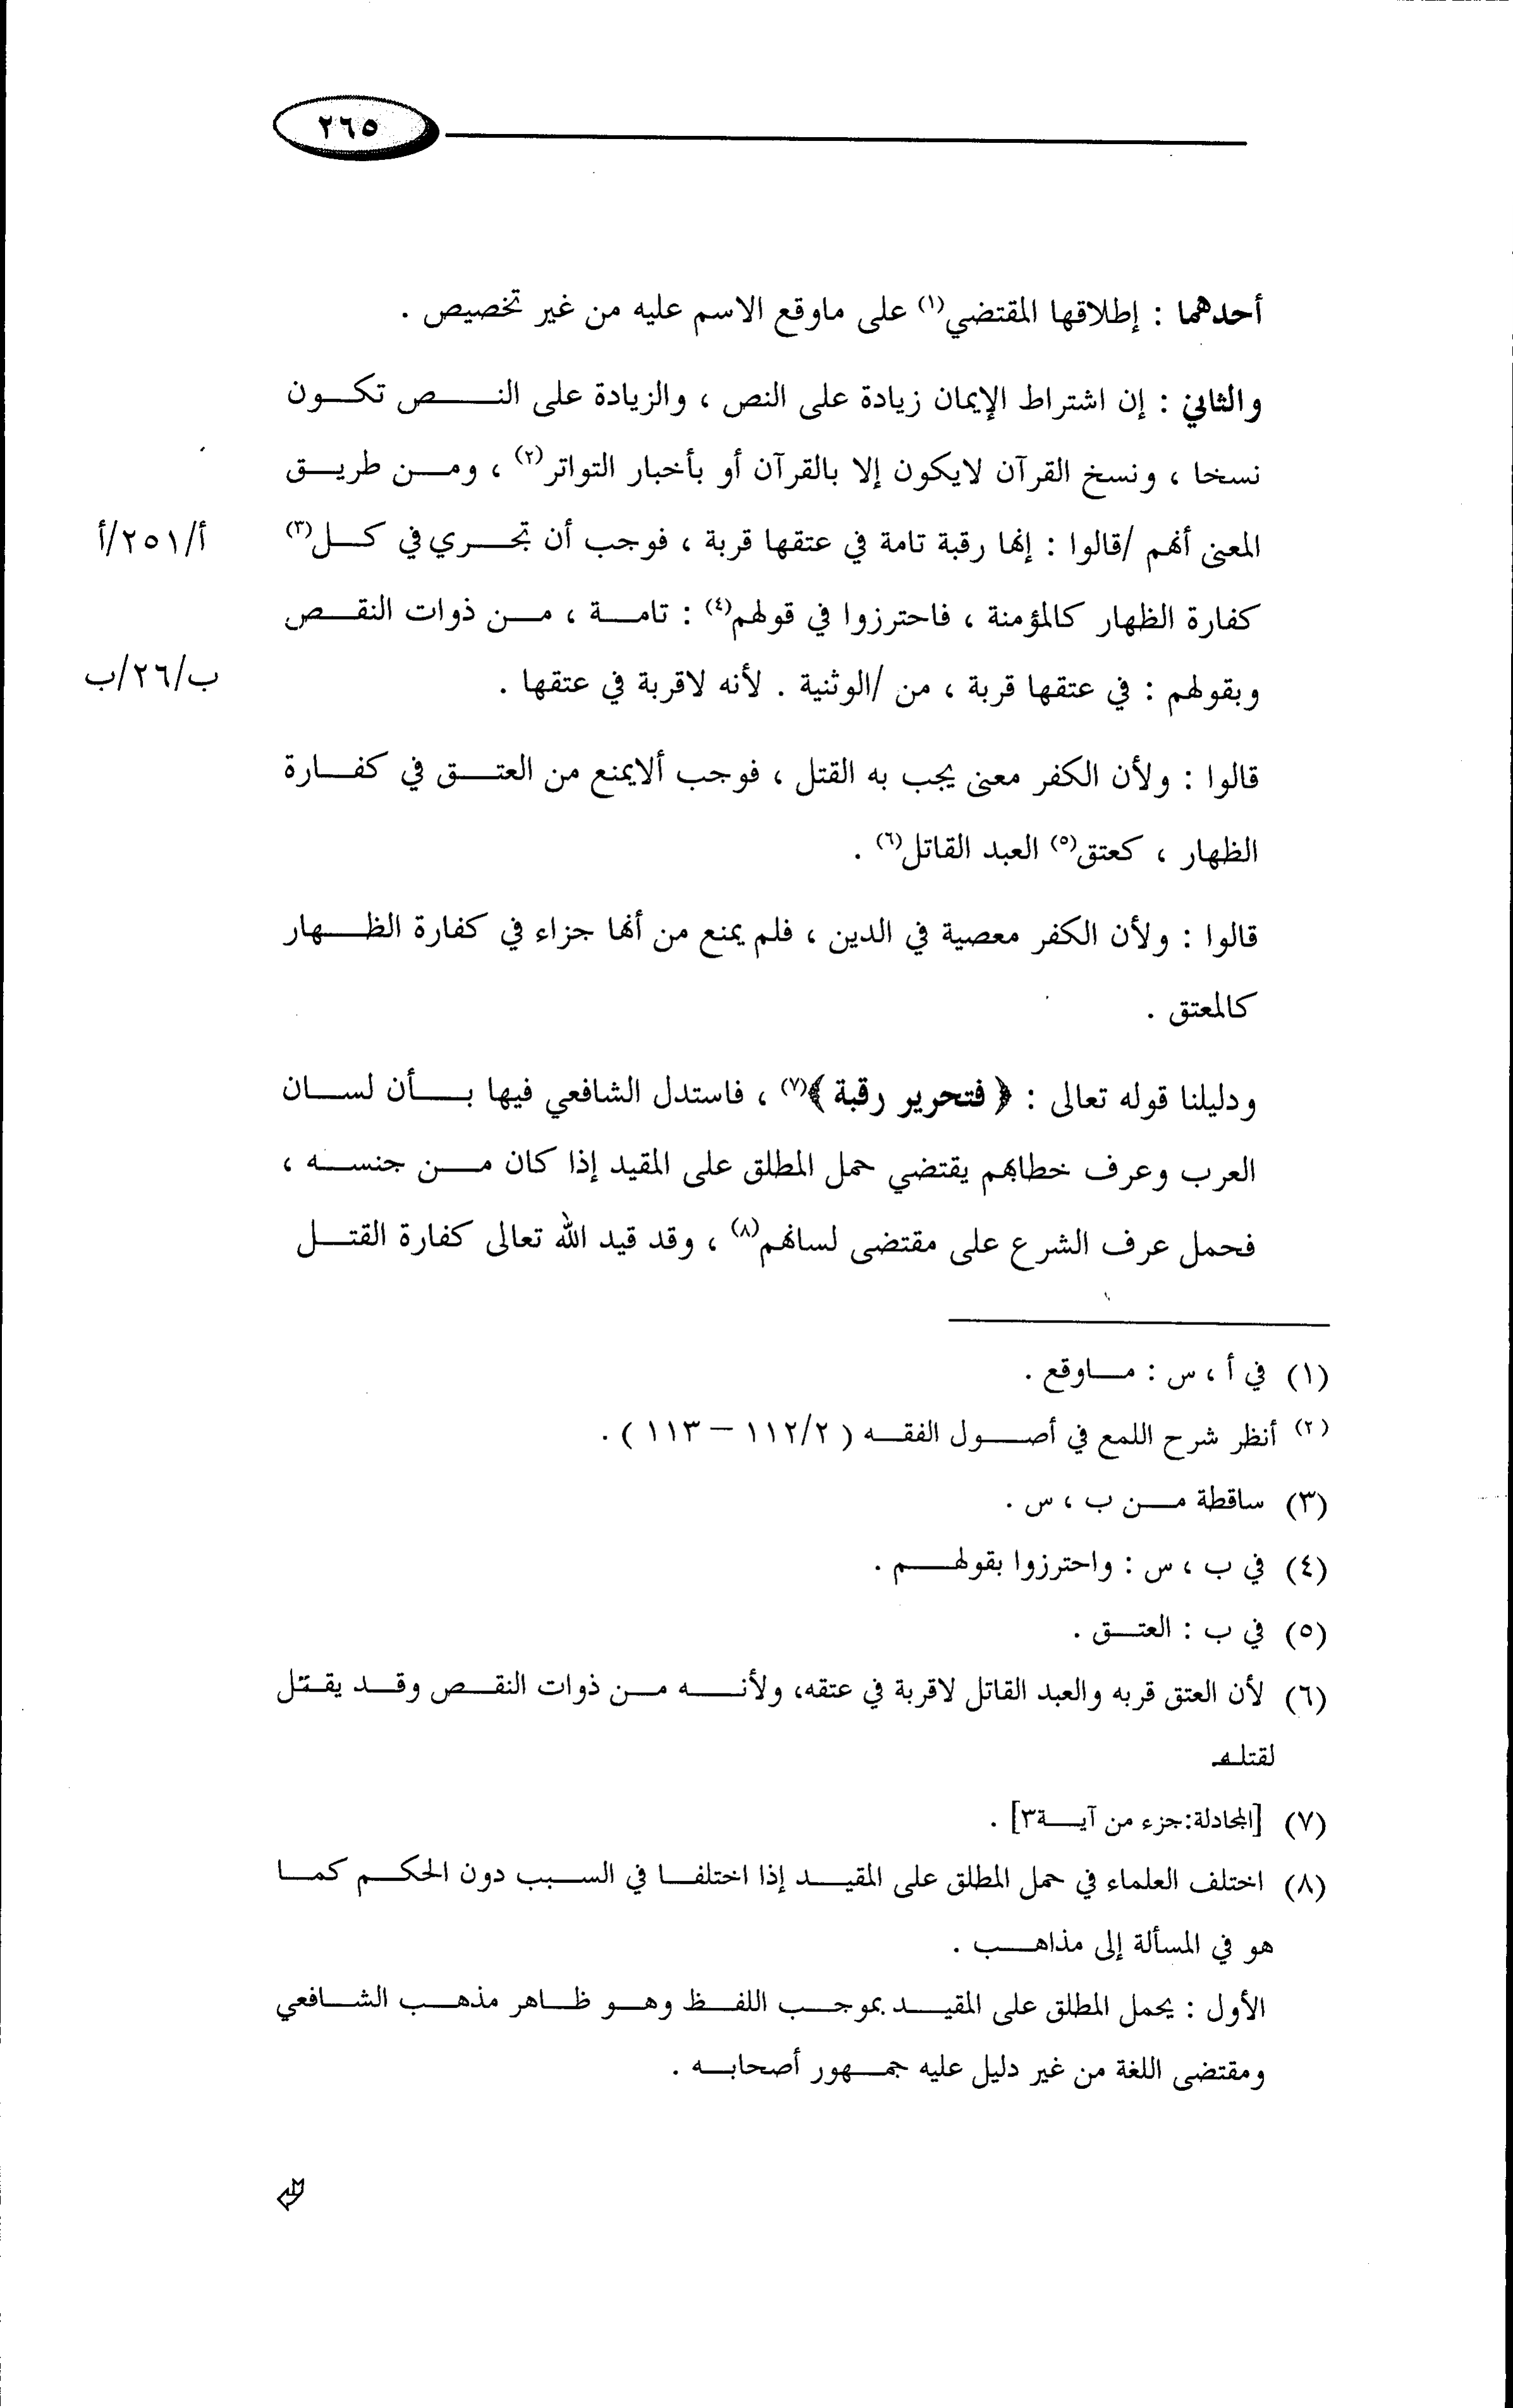 ٢٦٥
أحدهما : إطلاقها المقتضي(١) على ماوقع الاسم عليه من غير تخصيص .
والثاني : إن اشتراط الإيمان زيادة على النص ، والزيادة على النص تكون
نسخا ، ونسخ القرآن لايكون إلا بالقرآن أو بأخبار التواتر(٢) ، ومن طريق
المعنى أنهم /قالوا : إنها رقبة تامة في عتقها قربة ، فوجب أن تجري في كل(٣)
أ/٢٥١/أ
كفارة الظهار كالمؤمنة ، فاحترزوا في قولهم(٤) : تامة ، من ذوات النقص
وبقولهم : في عتقها قربة ، من /الوثنية . لأنه لاقربة في عتقها .
ب/٢٦/ب
قالوا : ولأن الكفر معنى يجب به القتل ، فوجب ألايمنع من العتق في كفارة
الظهار ، كعتق(٥) العبد القاتل(٦) .
قالوا : ولأن الكفر معصية في الدين ، فلم يمنع من أنها جزاء في كفارة الظهار
كالمعتق .
ودليلنا قوله تعالى : ﴿ فتحرير رقبة ﴾(٧) ، فاستدل الشافعي فيها بأن لسان
العرب وعرف خطابهم يقتضي حمل المطلق على المقيد إذا كان من جنسه ،
فحمل عرف الشرع على مقتضى لسانهم(٨) ، وقد قيد الله تعالى كفارة القتل
(١) في أ ، س : ماوقع .
(٢) أنظر شرح اللمع في أصول الفقه ( ١١٢/٢ – ١١٣ ) .
(٣) ساقطة من ب ، س .
(٤) في ب ، س : واحترزوا بقولهم .
(٥) في ب : العتق .
(٦) لأن العتق قربه والعبد القاتل لاقربة في عتقه، ولأنه من ذوات النقص وقد يقتل
لقتله
(٧) [المجادلة:جزء من آية٣] .
(٨) اختلف العلماء في حمل المطلق على المقيد إذا اختلفا في السبب دون الحكم كما
هو في المسألة إلى مذاهب .
الأول : يحمل المطلق على المقيد بموجب اللفظ وهو ظاهر مذهب الشافعي
ومقتضى اللغة من غير دليل عليه جمهور أصحابه .